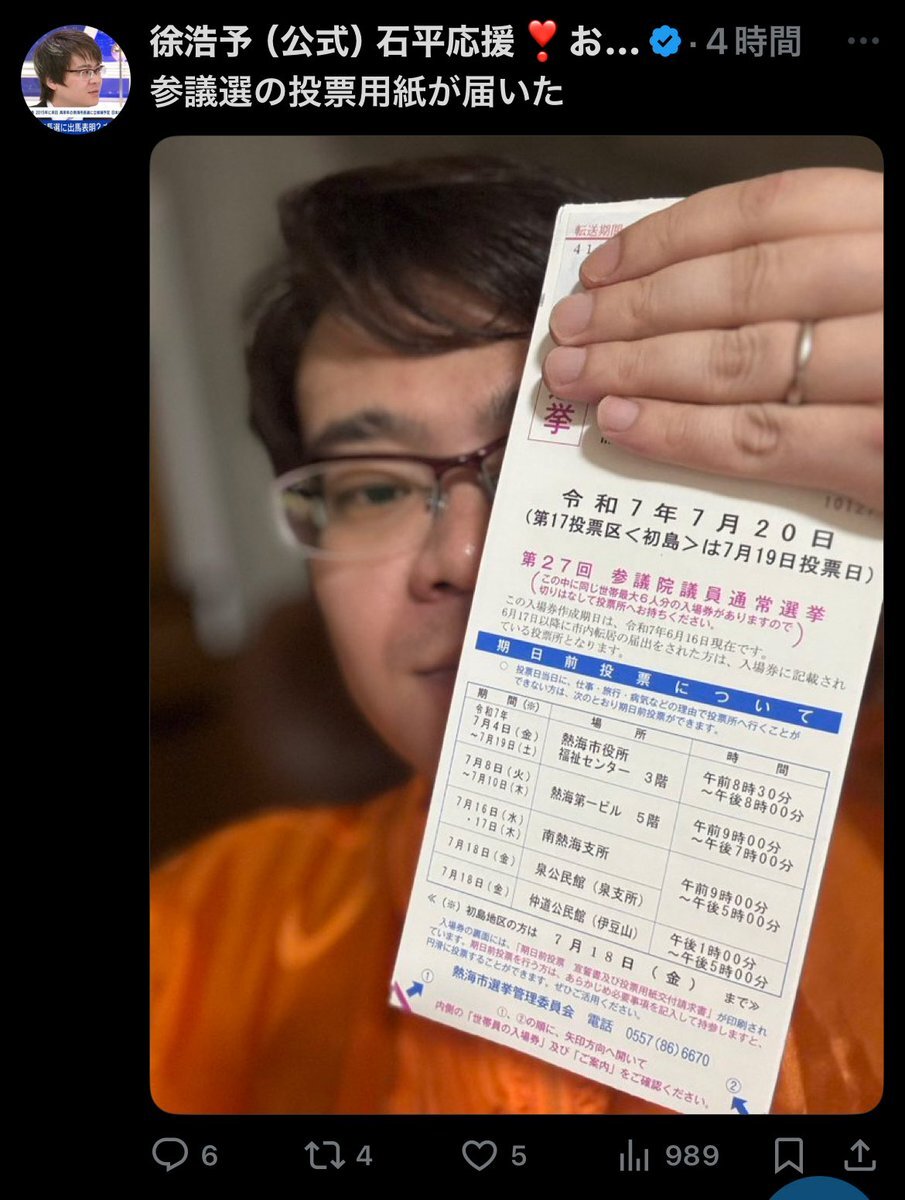 徐浩予（公式）石平応援❣️お… · 4時間
参議選の投票用紙が届いた
転送期間
41
挙
1012
令和7年7月20日
（第17投票区＜初島＞は7月19日投票日）
第27回 参議院議員通常選挙
（この中に同じ世帯最大6人分の入場券がありますので
切りはなして投票所へお持ちください。）
この入場券作成期日は、令和7年6月16日現在です。
6月17日以降に市内転居の届出をされた方は、入場券に記載され
ている投票所となります。
期日前投票について
○ 投票日当日に、仕事・旅行・病気などの理由で投票所へ行くことが
できない方は、次のとおり期日前投票ができます。
期間（※） 場所 時間
令和7年
7月4日（金）
～7月19日（土） 熱海市役所
福祉センター 3階 午前8時30分
～午後8時00分
7月8日（火）
～7月10日（木） 熱海第一ビル 5階 午前9時00分
～午後7時00分
7月16日（水）
・17日（木） 南熱海支所 午前9時00分
～午後5時00分
7月18日（金） 泉公民館（泉支所）
7月18日（金） 仲道公民館（伊豆山） 午後1時00分
～午後5時00分
≪（※）初島地区の方は 7月18日（金） まで≫
入場券の裏面には、「期日前投票 宣誓書及び投票用紙交付請求書」が印刷され
ています。期日前投票を行う方は、あらかじめ必要事項を記入して持参しますと、
円滑に投票することができます。ぜひご活用ください。
① 熱海市選挙管理委員会 電話 0557(86)6670
①、②の順に、矢印方向へ開いて
内側の「世帯員の入場券」及び「ご案内」をご確認ください。
②
6 4 5 989